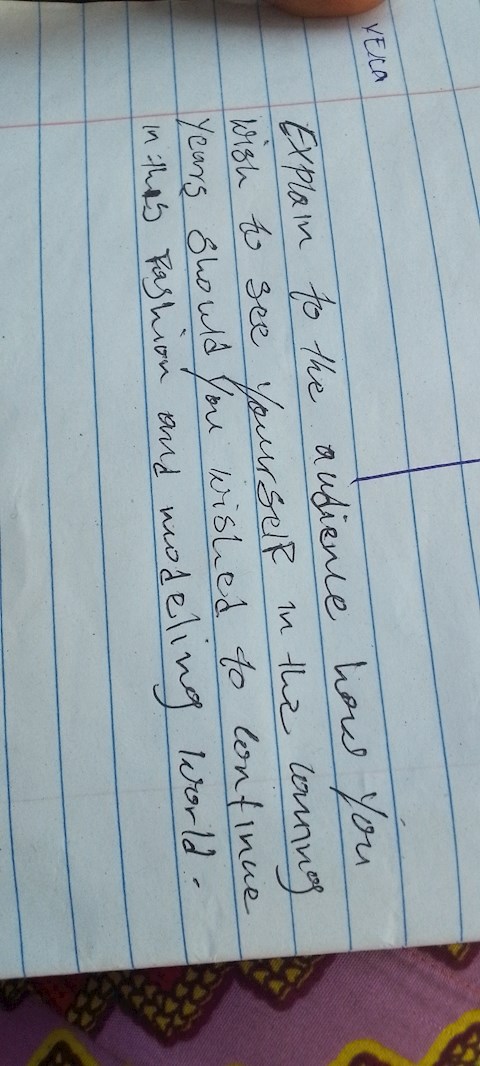 VERA
Explain to the audience how you
wish to see yourself in the coming
years should you wished to continue
in this Fashion and modeling world.